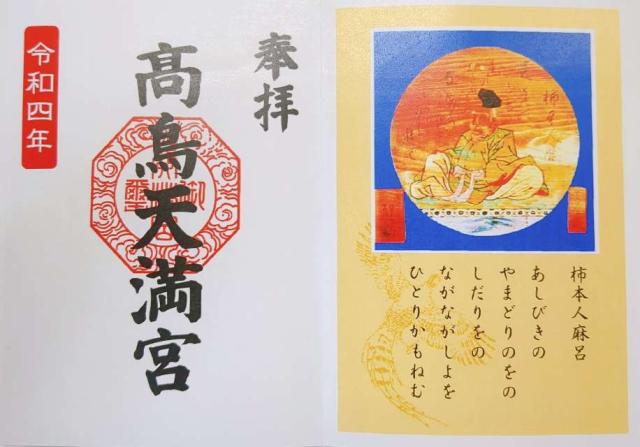 奉拝
髙鳥天満宮
令和四年
柿本人麻呂
あしびきの
やまどりのをの
しだりをの
ながながしよを
ひとりかもねむ